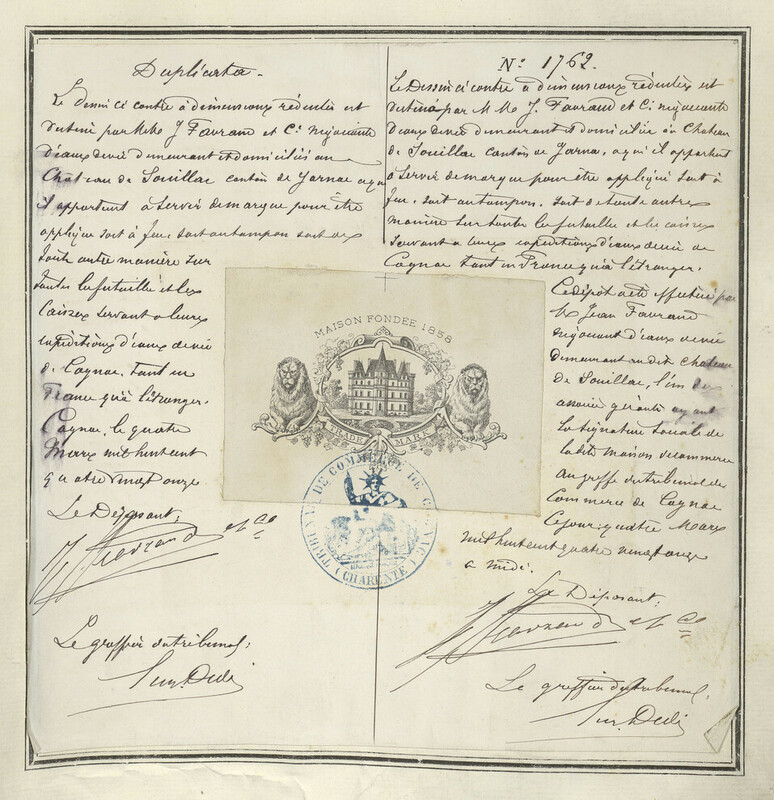 Duplicata.
Le dessin ci contre à dimensions réduites est
destiné par MM. J. Favraud et Cie négociants
d'eaux de vie demeurant et domiciliés au
Château de Souillac canton de Jarnac a qui
il appartient à servir de marque pour être
appliqué soit à feu soit au tampon soit de
toute autre manière sur
toutes les futailles et les
caisses servant a leurs
expéditions d'eaux de vie
de Cognac, tant en
France qu'à l'étranger.
Cognac, le quatre
Mars mil huit cent
quatre vingt onze
Le Déposant:
J. Favraud et Cie
Le greffier du tribunal:
No. 1762.
Le Dessin ci contre à dimensions réduites est
destiné par MM. J. Favraud et Cie négociants
d'eaux de vie demeurant et domiciliés au Château
de Souillac canton de Jarnac, a qui il appartient
à servir de marque pour être appliqué soit à
feu, soit au tampon, soit de toute autre
manière sur toutes les futailles et les caisses
servant a leurs expéditions d'eaux de vie de
Cognac tant en France qu'à l'étranger.
Ce dépôt a été effectué par
M. Jean Favraud
négociant d'eaux de vie
demeurant au dit Château
de Souillac, l'un des
associés ayant
la signature sociale de
la dite maison de commerce
au greffe du tribunal de
Commerce de Cognac
Ce jour, quatre Mars
mil huit cent quatre vingt onze
a midi.
Le Déposant:
J. Favraud et Cie
Le greffier du tribunal:
MAISON FONDÉE 1858
TRADE MARK
TRIBUNAL DE COMMERCE DE COGNAC
(CHARENTE)